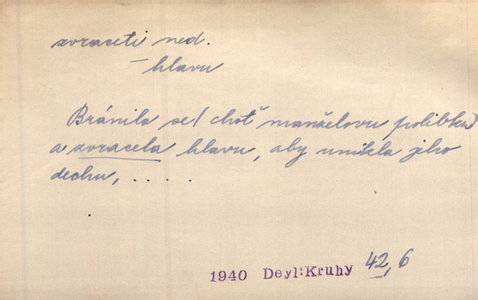 zvraceti ned.
– hlavu
Bránila se/ choť manželovu polibku
a zvracela hlavu, aby unikla jeho
dechu, . . . . .
1940 Deyl: Kruhy 42, 6